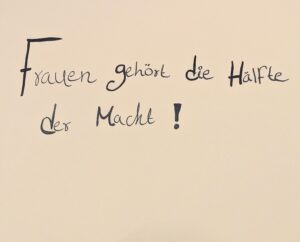 Frauen gehört die Hälfte
der Macht !